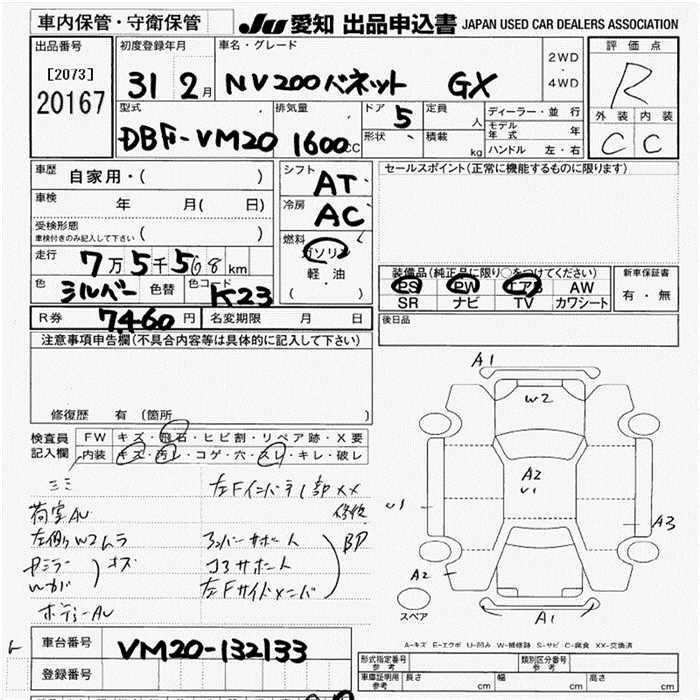 車内保管・守衛保管
JU 愛知 出品申込書 JAPAN USED CAR DEALERS ASSOCIATION
出品番号
[2073]
20167
初度登録年月
31 2月
車名・グレード
NV200バネット GX
2WD
・
4WD
評価点
R
外装 内装
C C
型式
DBF-VM20
排気量
1600cc
ドア 5
形状
定員 人
積載 kg
ディーラー・並行
モデル年式 年
ハンドル 左・右
車歴 自家用・( )
車検 年 月( 日)
受検形態
車検付きのみ記入して下さい ( )
走行 7万5千568km
色 シルバー 色替 色コード K23
シフト AT
冷房 AC
燃料 ガソリン
軽・油
( ・ )
セールスポイント(正常に機能するものに限ります)
装備品(純正品に限り○をつけてください)
PS PW エアB AW
SR ナビ TV カワシート
新車保証書
有・無
R券 7,460円 名変期限 月 日
後日品
注意事項申告欄(不具合内容等は具体的に記入して下さい)
修復歴 有 (箇所 )
検査員記入欄
FW キズ・飛石・ヒビ割・リペア跡・X要
内装 キズ・汚レ・コゲ・穴・スレ・キレ・破レ
左Fインパチ1部XX
荷室AU 修復
左側りW2ムラ
コアサポート
左Fサイドメンバ
BP
キズ
A1
W2
A2
U1
U1
A3
A2
A1
スペア
A-キズ E-エクボ U-凹み W-補修跡 S-サビ C-腐食 XX-交換済
車台番号 VM20-132133
登録番号
形式指定番号
参考
類別区分番号
参考
車庫証明用
参考
長さ cm 幅 cm 高さ cm